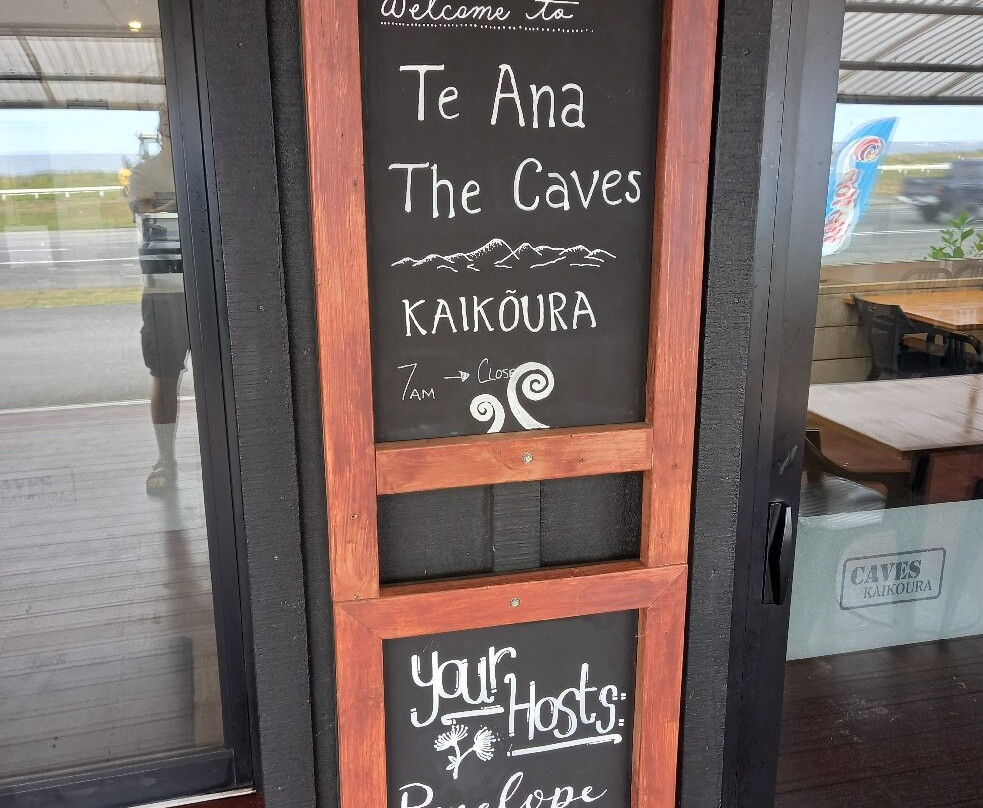 Welcome to
Te Ana
The Caves
KAIKÕURA
7AM → Close
Your
Hosts:
Penelope
CAVES
KAIKOURA
CAVES
KAIKOURA